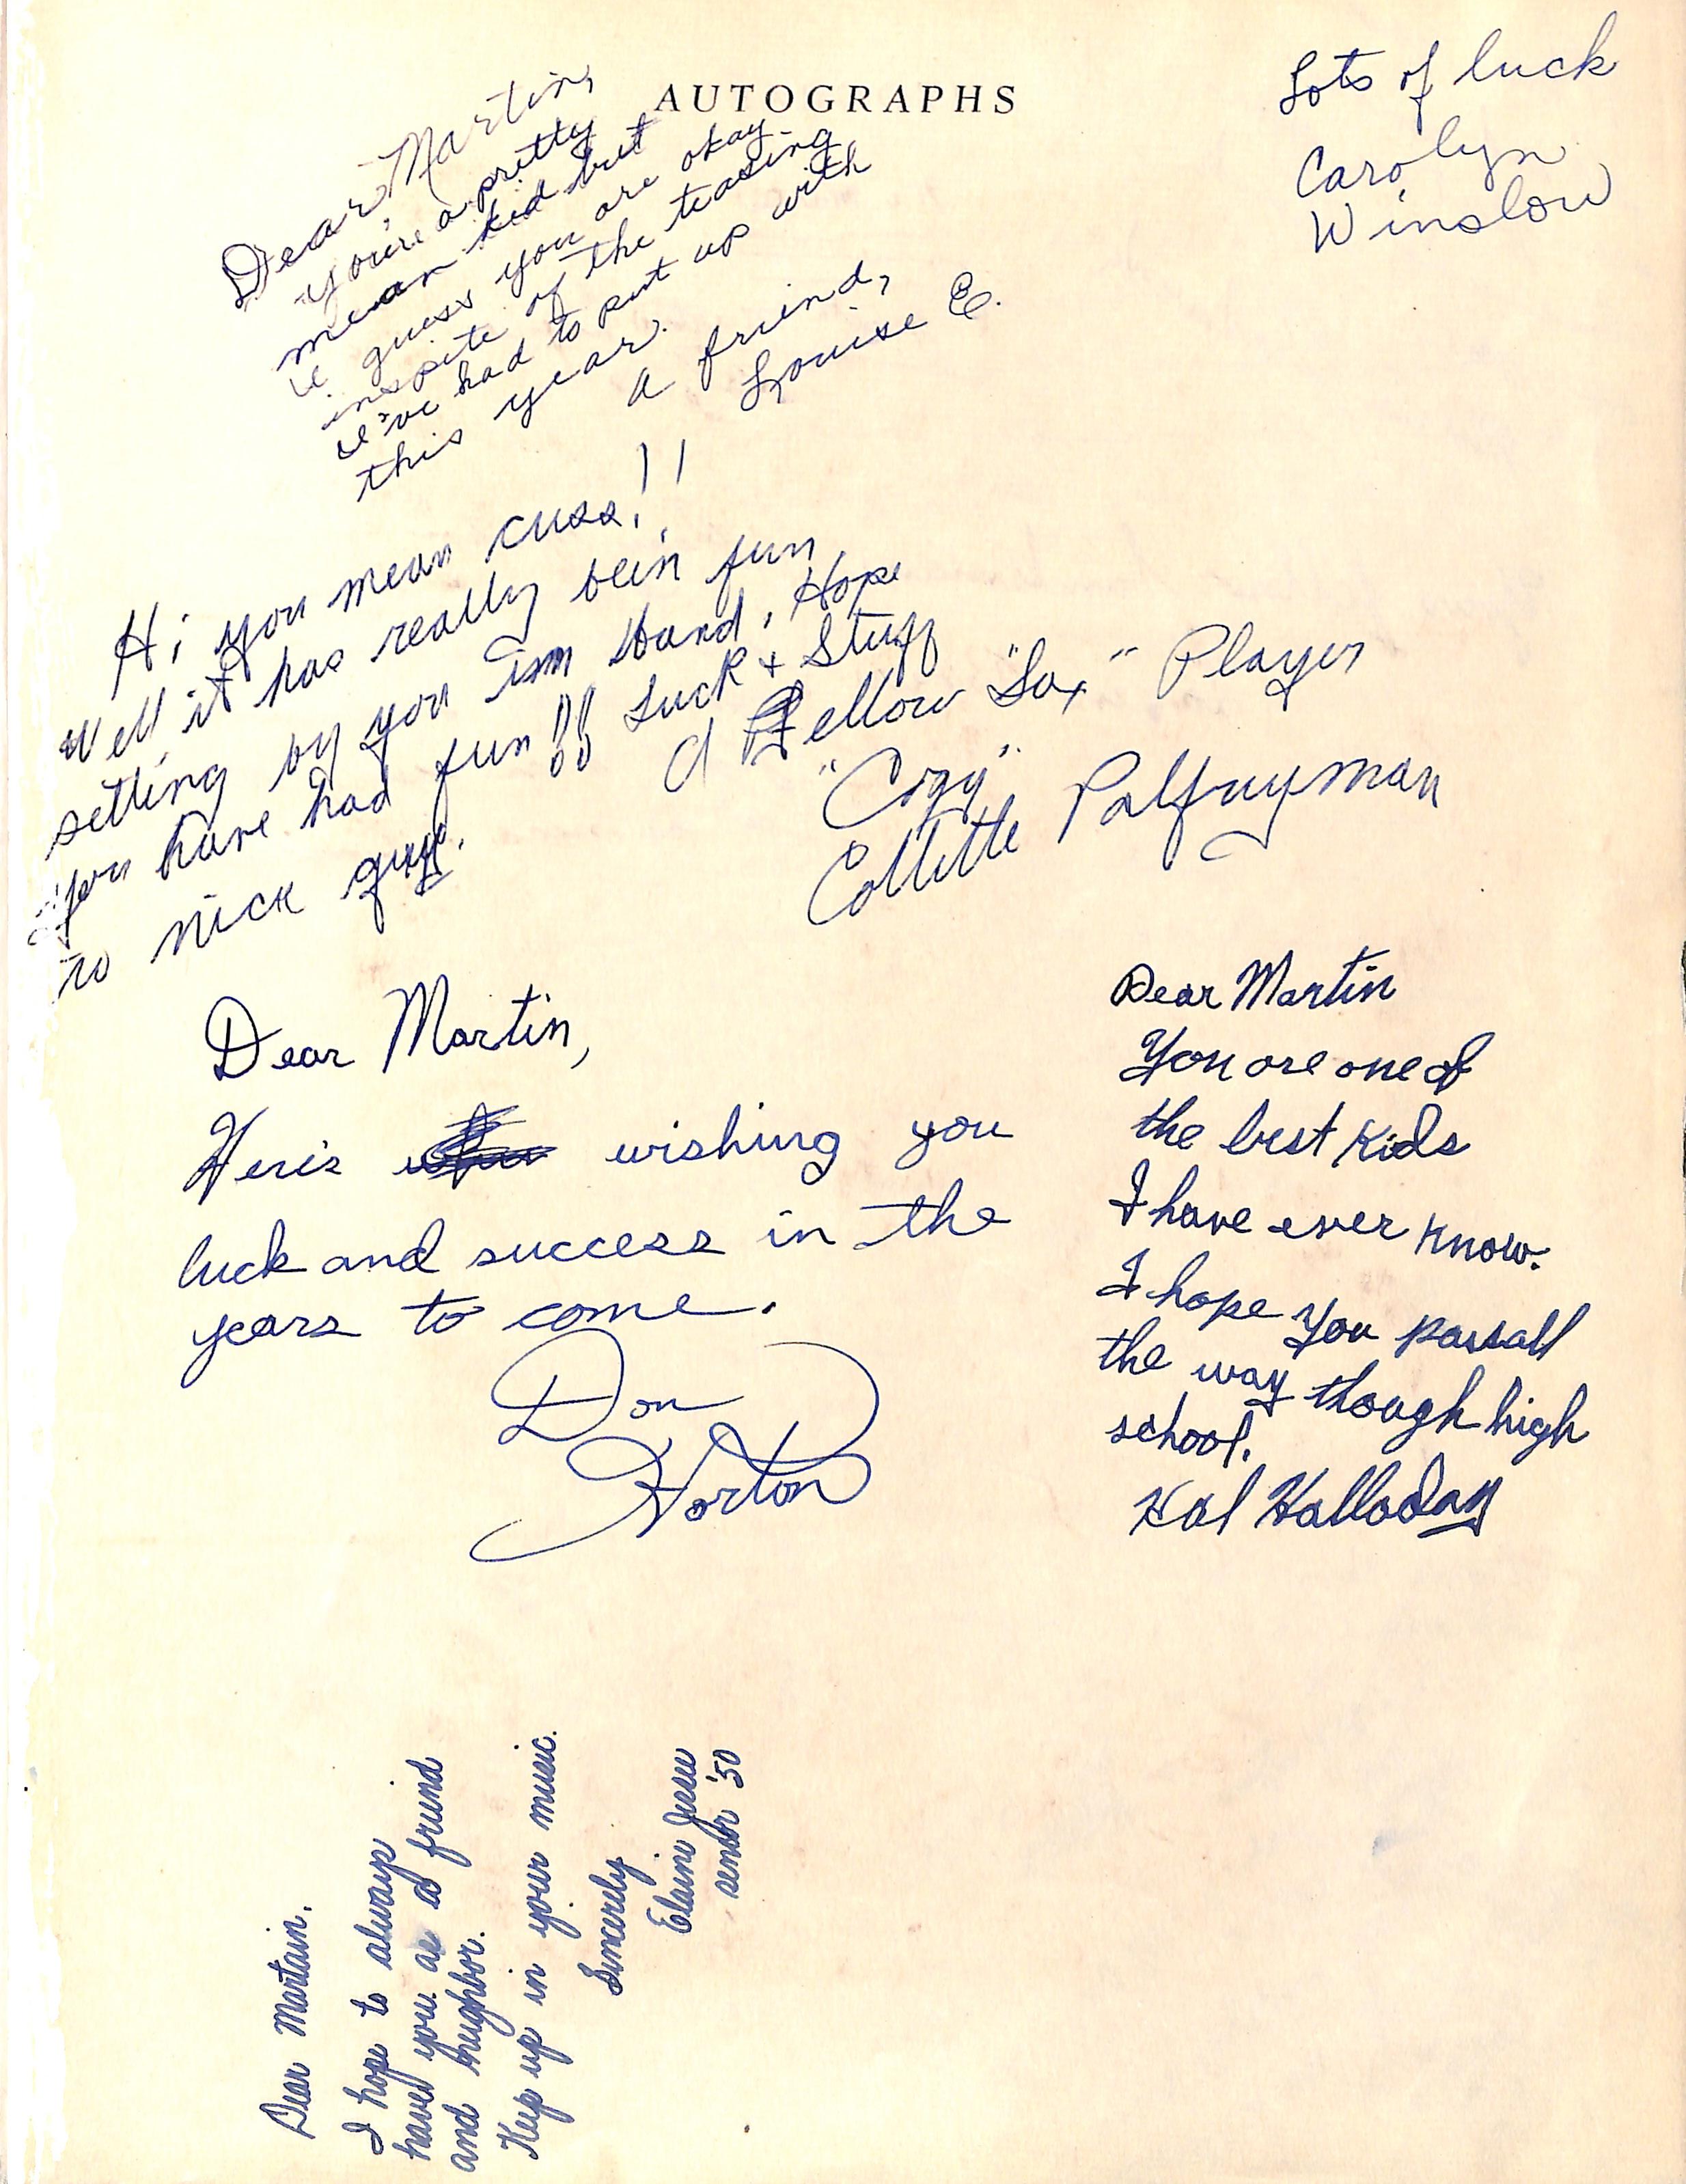 AUTOGRAPHS
Lots of luck
Carolyn
Winslow
Dear Martin,
You're a pretty
mean kid but
I guess you are okay
inspite of the teasing
I've had to put up with
this year.
a friend,
Louise E.
Hi you mean cuss!!
Well, it has really bein fun
setting by you in Band. Hope
you have had fun!! Luck & Stuff
to nick guy.
A Fellow "Sax" Player
"Cozy"
Collette Palfreyman
Dear Martin,
Here's wishing you
luck and success in the
years to come.
Don
Horton
Dear Martin
You are one of
the best kids
I have ever know.
I hope you pass all
the way though high
school.
Hal Halladay
Dear Martain,
I hope to always
have you as a friend
and neighbor.
Keep up in your music.
Sincerely
Elaine
senior '50